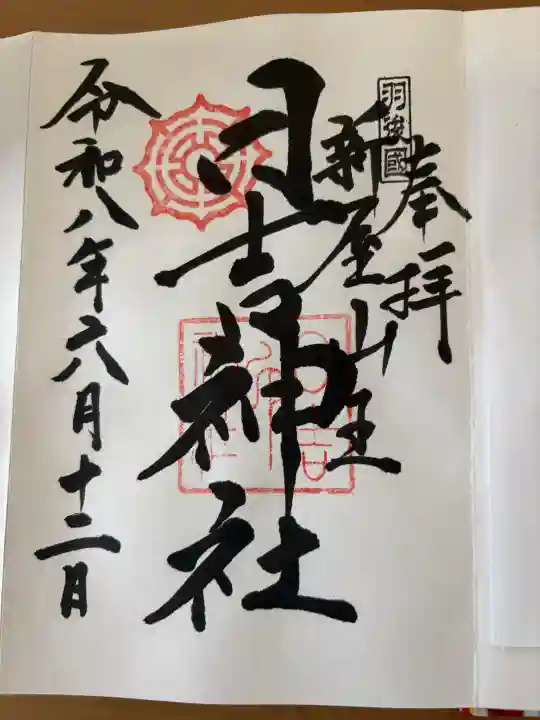 羽後國
奉拝
新屋山王
日吉神社
令和八年六月十二日